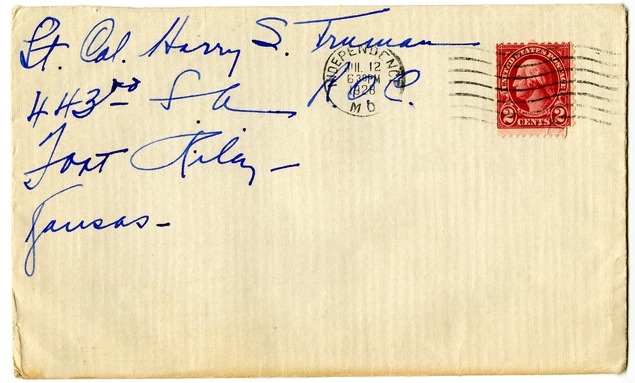 Lt. Col. Harry S. Truman
443rd F A R. O. C.
Fort Riley -
Kansas -
INDEPENDENCE
JUL 12
6 30PM
1928
MO
UNITED STATES POSTAGE
2 CENTS 2